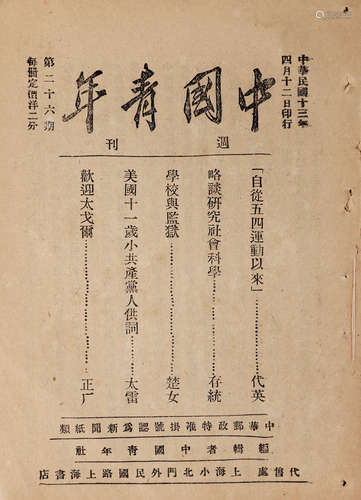 中華民國十三年
四月十二日印行
中國青年
週刊
第二十六期
每冊定價洋二分
「自從五四運動以來」…………代英
略談研究社會科學…………存統
學校與監獄…………楚女
美國十一歲小共產黨人供詞…………太雷
歡迎太戈爾…………正厂
中華郵政特准掛號認爲新聞紙類
編輯者中國青年社
代售處上海小北門外民國路上海書店